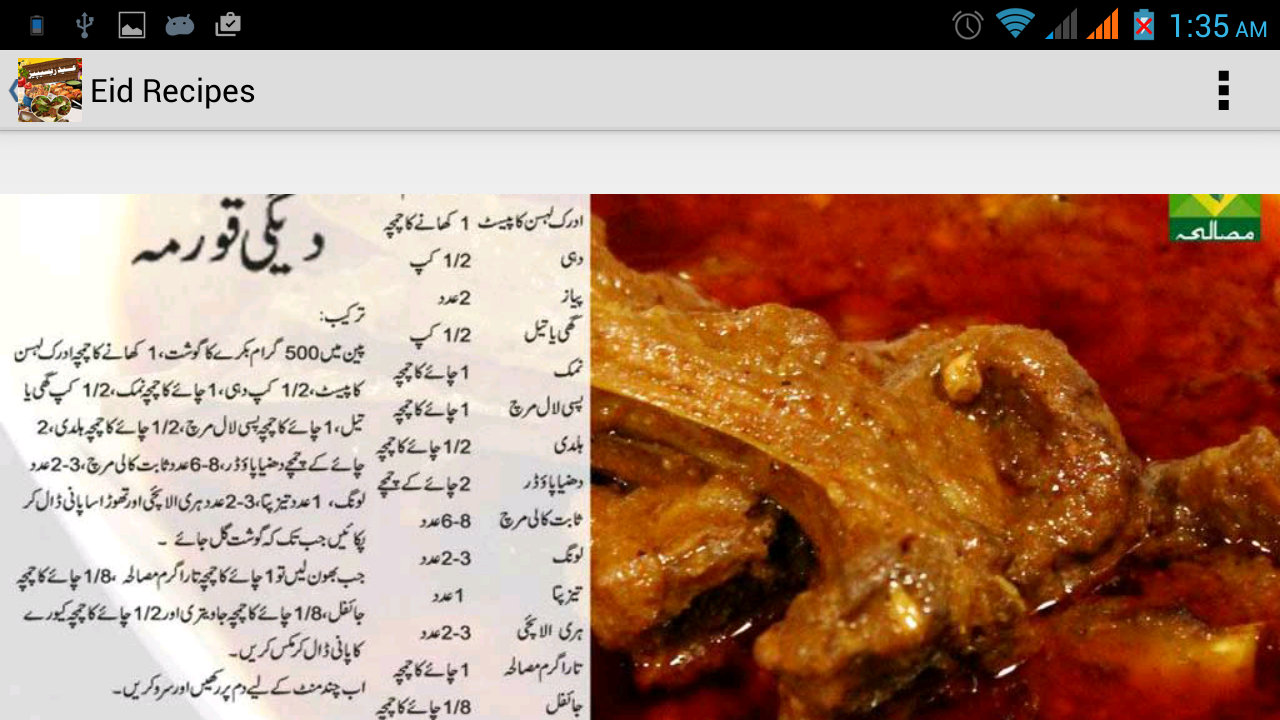 1:35 AM
عید ریسیپیز
Eid Recipes
مصالحہ
دیگی قورمہ
ادرک لہسن کا پیسٹ 1 کھانے کا چمچہ
دہی 1/2 کپ
پیاز 2عدد
گھی یا تیل 1/2 کپ
نمک 1 چائے کا چمچہ
پسی لال مرچ 1 چائے کا چمچہ
ہلدی 1/2 چائے کا چمچہ
دھنیا پاؤڈر 2 چائے کے چمچے
ثابت کالی مرچ 6-8عدد
لونگ 2-3عدد
تیز پتا 1عدد
ہری الائچی 2-3عدد
تارا گرم مصالحہ 1 چائے کا چمچہ
جائفل 1/8 چائے کا چمچہ
ترکیب:
پین میں 500 گرام بکرے کا گوشت، 1 کھانے کا چمچہ ادرک لہسن
کا پیسٹ، 1/2 کپ دہی، 1 چائے کا چمچہ نمک، 1/2 کپ گھی یا
تیل، 1 چائے کا چمچہ پسی لال مرچ، 1/2 چائے کا چمچہ ہلدی، 2
چائے کے چمچے دھنیا پاؤڈر، 6-8عدد ثابت کالی مرچ، 2-3عدد
لونگ، 1عدد تیز پتا، 2-3عدد ہری الائچی اور تھوڑا سا پانی ڈال کر
پکائیں جب تک کہ گوشت گل جائے ۔
جب بھون لیں تو 1 چائے کا چمچہ تارا گرم مصالحہ ، 1/8 چائے کا چمچہ
جائفل، 1/8 چائے کا چمچہ جاوتری اور 1/2 چائے کا چمچہ کیوڑے
کا پانی ڈال کر مکس کریں۔
اب چند منٹ کے لیے دم پر رکھیں اور سرو کریں۔